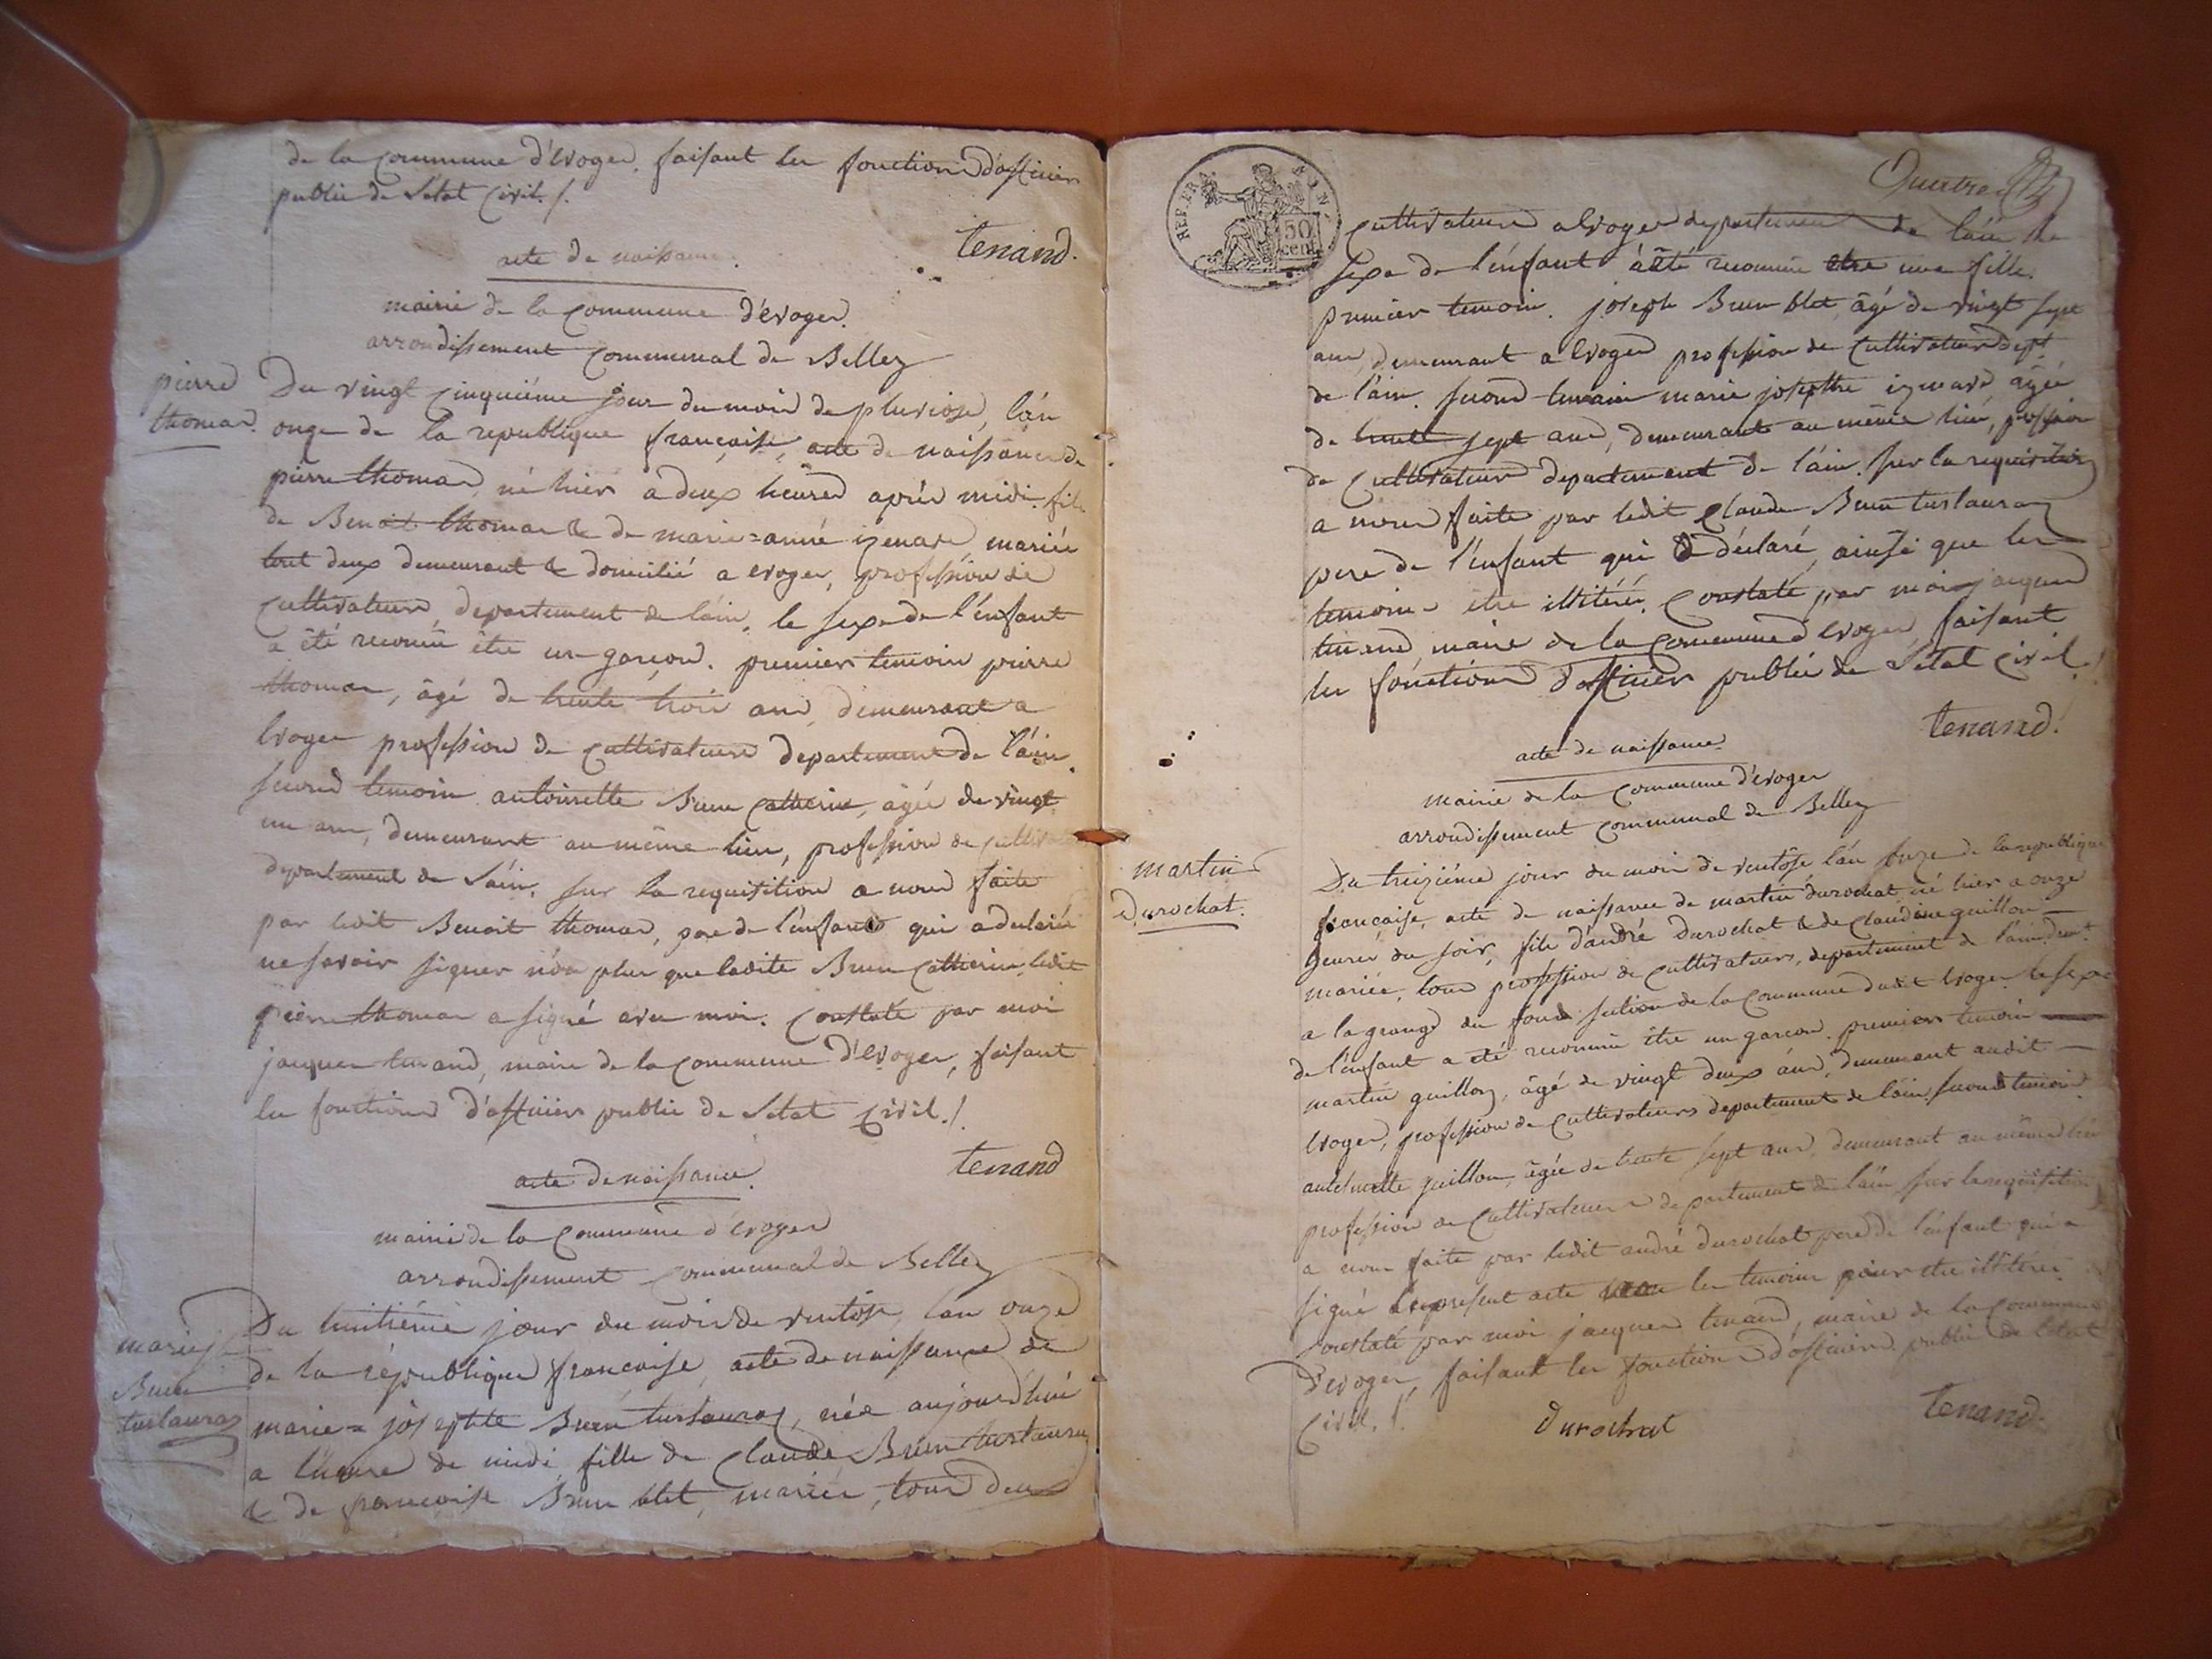 de la Commune d'Evoges, faisant les fonctions d'officier
public de l'etat Civil./.
tenand.
acte de naissance.
mairie de la Commune d'Evoges.
arrondissement Communal de Belley
pierre
thomas.
Du vingt Cinquiéme jour du mois de pluviose, l'an
onze de la republique française, acte de naissance de
pierre thomas, né hier a deux heures après midi. fils
de Benoit thomas & de marie=anne izenard, mariés
tout deux demeurant & domicilié a evoges, profession de
Cultivateurs, departement de l'ain, le sexe de l'enfant
a été reconnu être un garçon. premier temoin pierre
thomas, âgé de trente trois ans, demeurant a
Evoges profession de Cultivateurs departement de l'ain.
second temoin antoinette Brun Catherin, âgée de vingt
un ans, demeurant au même lieu, profession de
departement de l'ain. sur la requisition a nous faite
par ledit Benoit thomas, pere de l'enfant qui a declaré
ne savoir signer non plus que ladite Brun Catherin, ledit
pierre thomas a signé avec moi. Constaté par moi
jacques tenand, maire de la Commune d'Evoges, faisant
les fonctions d'officier public de l'etat Civil./.
tenand
acte de naissance.
mairie de la Commune d'Evoges
arrondissement Communal de Belley
marie j
Brun
turlauraz
Du huitiéme jour du mois de ventôse, l'an onze
de la république française, acte de naissance de
marie=josephte Brun turlauraz, née aujourd'hui
a l'heure de midi fille de Claude Brun turlauraz
& de françoise Brun blet, mariés, tous deux
REP. FRA
50
cent
Quatre
Cultivateurs a Evoges departement de l'ain le
sexe de l'enfant a été reconnu etre une fille.
premier temoin. joseph Brun blet, âgé de vingt sept
ans, demeurant a Evoges profession de Cultivateurs dept
de l'ain. second temoin marie josephte izenard âgée
de trente sept ans, demeurant au même lieu, profession
de Cultivateurs departement de l'ain. sur la requisition
a nous faite par ledit Claude Brun turlauraz
pere de l'enfant qui a déclaré, ainsi que les
temoins être illitérés. Constaté par moi jacques
tenand, maire de la Commune d'Evoges, faisant
les fonctions d'officier public de l'etat Civil./.
tenand.
acte de naissance.
mairie de la Commune d'Evoges
arrondissement Communal de Belley
martin
Durochat.
Du treiziéme jour du mois de ventôse l'an onze de la republique
française, acte de naissance de martin durochat né hier a onze
heures du soir, fils d'andré Durochat & de Claudine guillon
mariés, tous profession de Cultivateurs, departement de l'ain demt.
a la grange du fond section de la Commune dudit Evoges. le sexe
de l'enfant a eté reconnu être un garçon. premier temoin
martin guillon, âgé de vingt deux ans, demeurant audit
Evoges, profession de Cultivateurs departement de l'ain, second temoin
antelmette guillon, âgée de trente sept ans, demeurant au même lieu
profession de Cultivateurs departement de l'ain sur la requisition
a nous faite par ledit andré durochat pere de l'enfant qui a
signé le present acte les temoins pour être illitérés
Constaté par moi jacques tenand, maire de la Commune
d'Evoges, faisant les fonctions d'officier public de l'etat
Civil./.
Durochat
tenand.